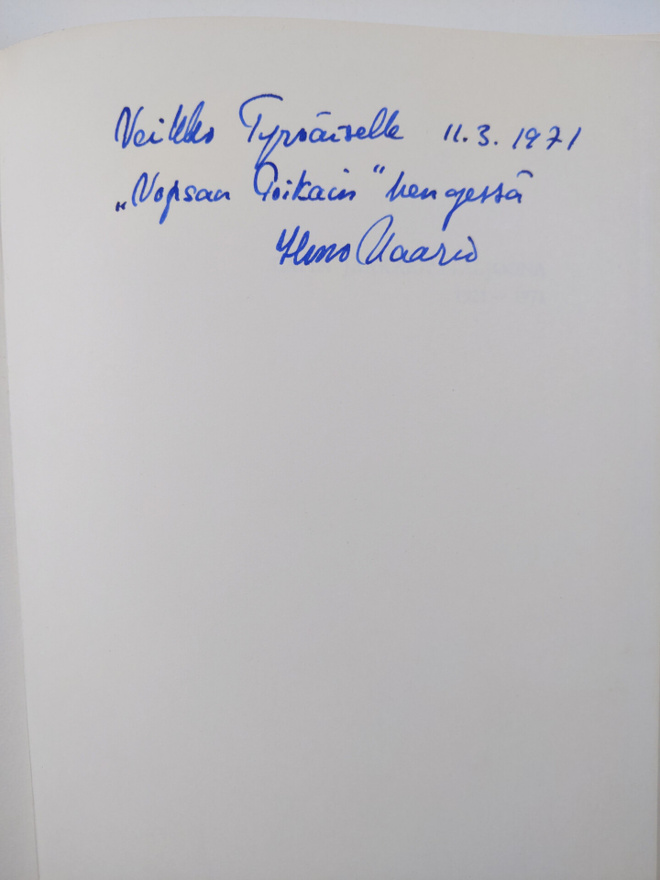 Veikko Tyrväiselle 11.3.1971
„Vopsan Poikain" hengessä
Ilmo Kaario